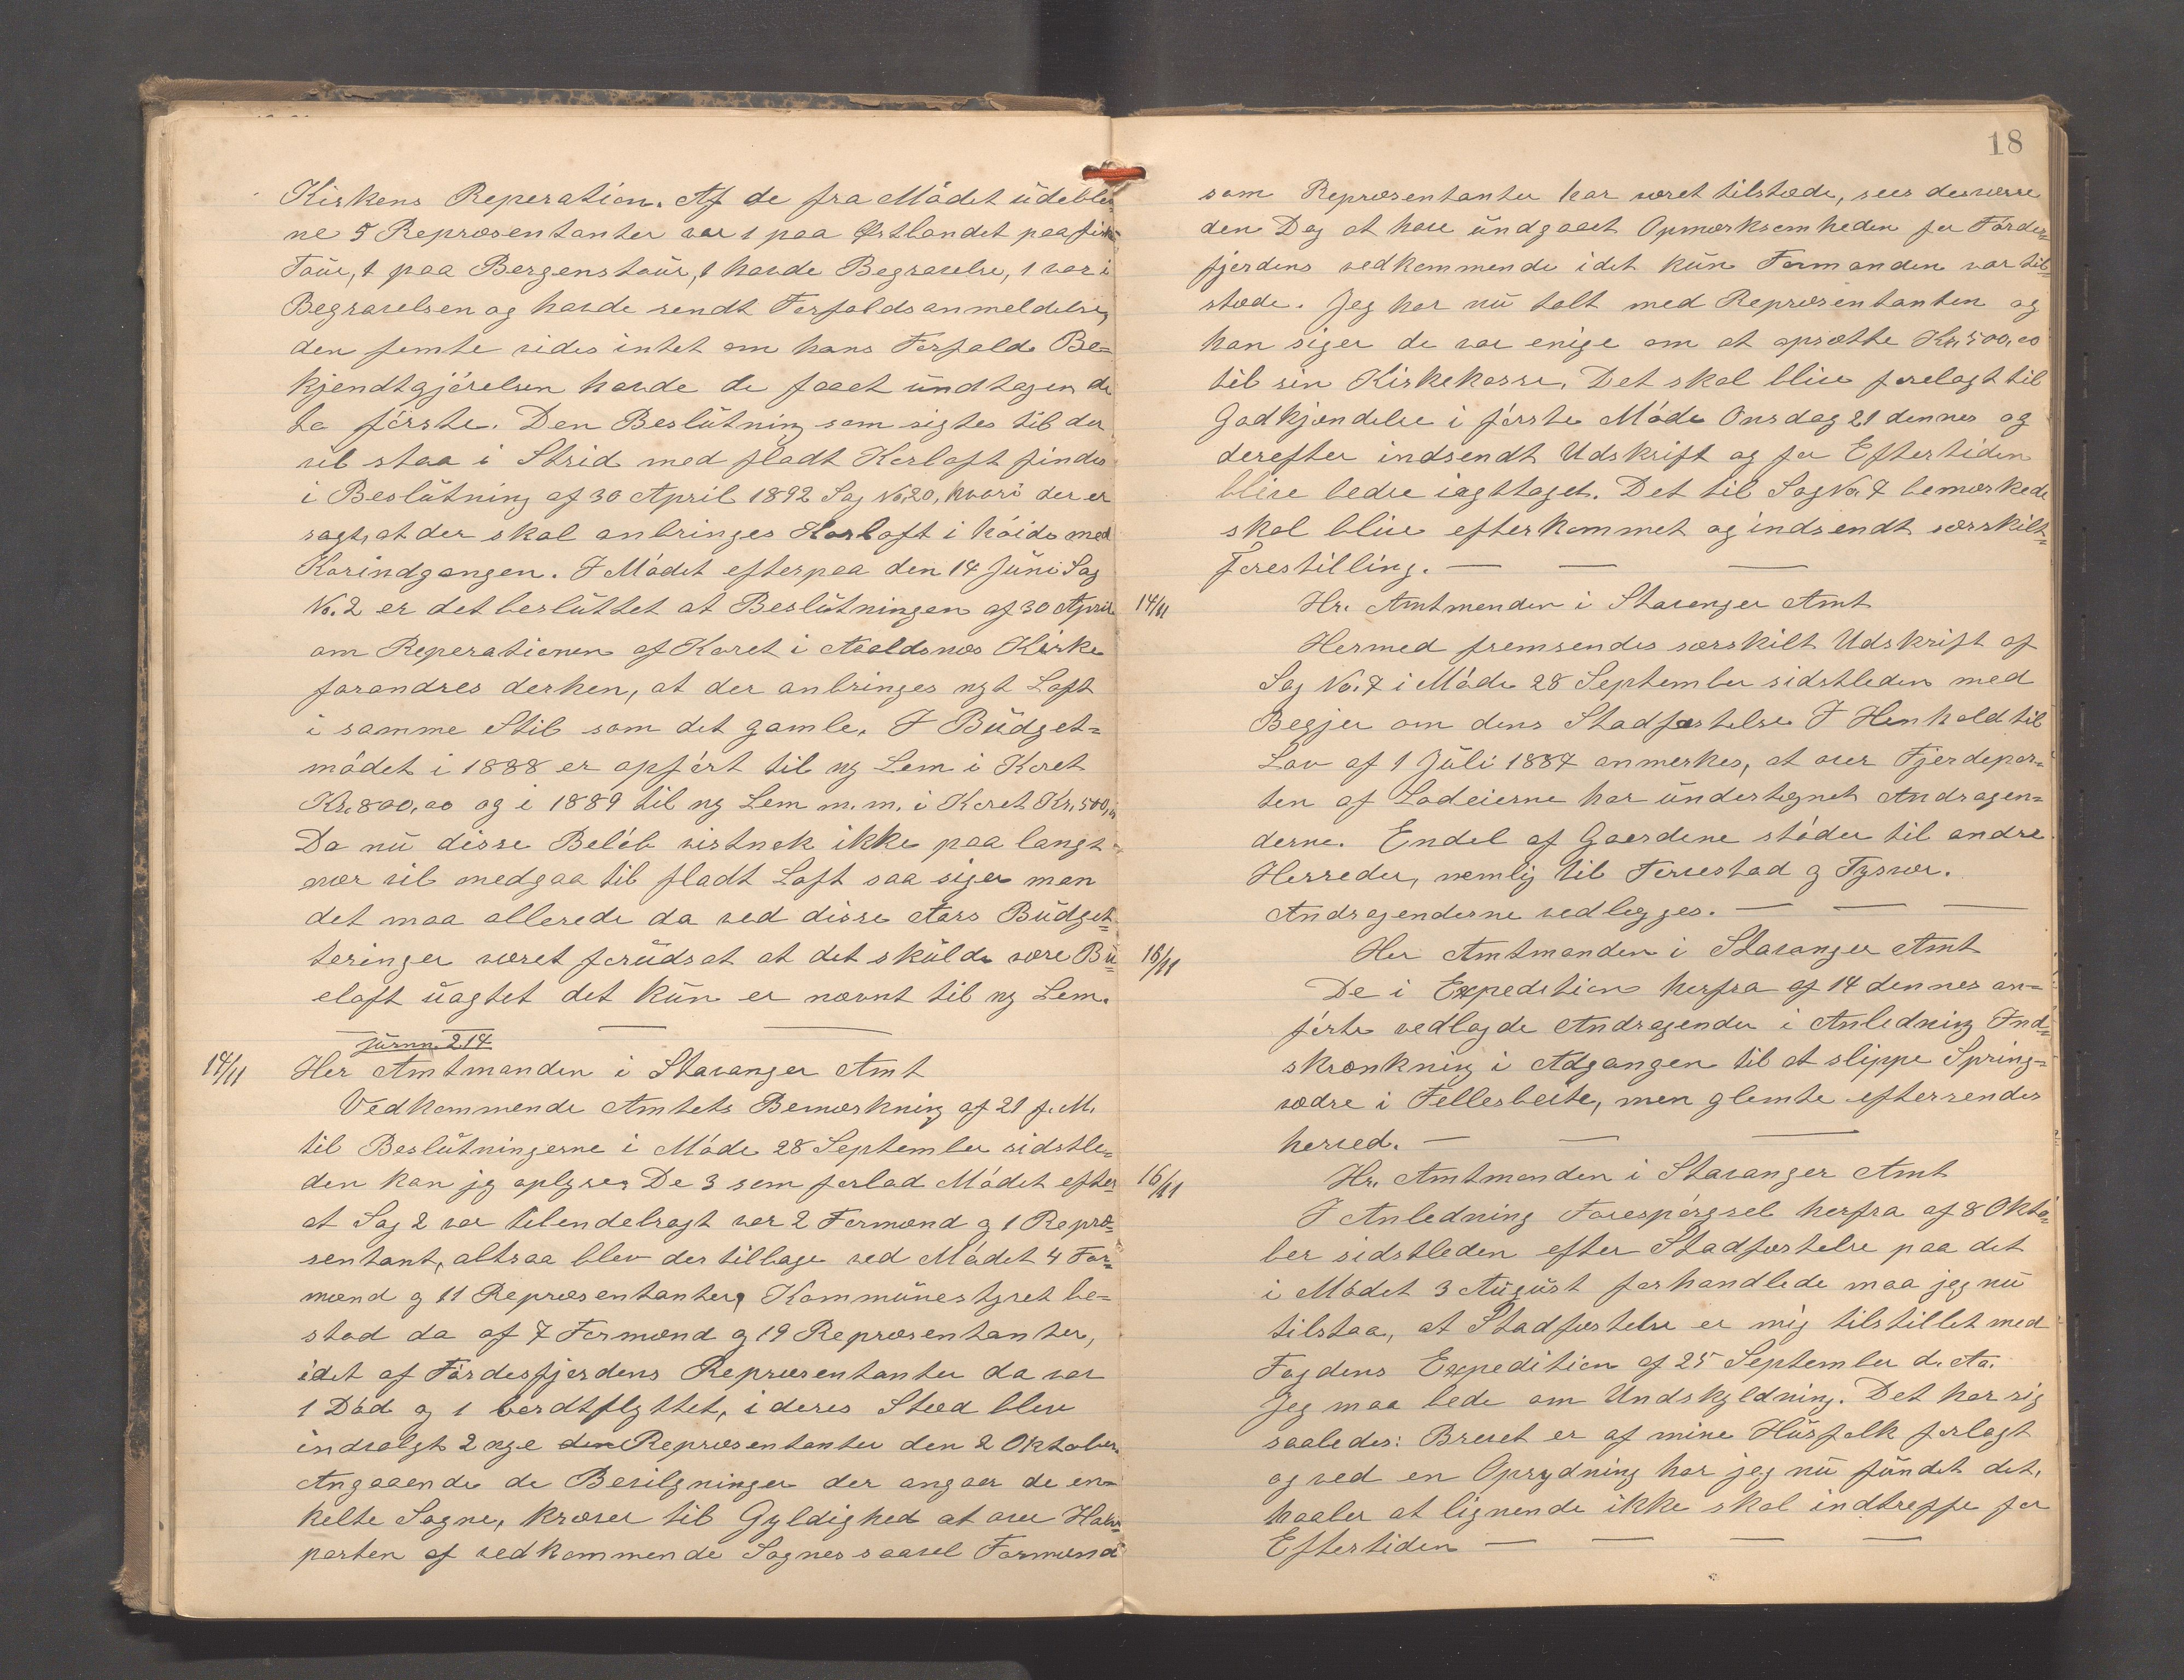 Kirkens Reperation. Af de fra Mödet udeblev-
ne 5 Repræsentanter var 1 paa Østlandet paa
Tour, 1 paa Bergenstour, 1 havde Begravelse, 1 var i
Begravelsen og havde sendt Forfaldsanmeldelse,
den femte vides intet om hans Forfald. Be-
kjendtgjörelsen havde de faaet undtagen de
to förste. Den Beslutning som sigtes til der
vil staa i Strid med fladt Korloft findes
i Beslutning af 30 April 1892 Sag No. 20, hvori der er
sagt, at der skal anbringes Korloft i höide med
Korindgangen. I Mödet efterpaa den 14 Juni Sag
No. 2 er det besluttet at Beslutningen af 30 April
om Reperationen af Koret i Avaldsnæs Kirke
forandres derhen, at der anbringes nyt Loft
i samme Stil som det gamle. I Budget-
mödet i 1888 er opfört til ny Lem i Koret
Kr. 800,00 og i 1889 til ny Lem m. m. i Koret Kr. 500,00
Da nu disse Belöb vistnok ikke paa langt
nær vil medgaa til fladt Loft saa siger man
det maa allerede da ved disse Aars Budget-
teringer været forudsat at det skulde være Bu-
eloft uagtet det kun er nævnt til ny Lem.
Journ. 214
14/11 Her Amtmanden i Stavanger Amt
Vedkommende Amtets Bemærkning af 21 f. M.
til Beslutningerne i Möde 28 September sidstle-
den kan jeg oplyse. De 3 som forlod Mödet efter
at Sag 2 var tilendebragt var 2 Formænd og 1 Repræ-
sentant, altsaa blev der tilbage ved Mödet 4 For-
mænd og 11 Repræsentanter, Kommunestyret be-
stod da af 7 Formænd og 19 Repræsentanter,
idet af Fördesfjordens Repræsentanter da var
1 Död og 1 bordtflyttet, i deres Sted blev
indvalgt 2 nye Repræsentanter den 2 Oktober.
Angaaende de Bevilgninger der angaar de en-
kelte Sogne, kræver til Gyldighed at over Halv-
parten af vedkommende Sognes saavel Formænd
18
som Repræsentanter har været tilstæde, sees desværre
den Dag at have undgaaet Opmærksomheden for Fördes-
fjordens vedkommende idet kun Formanden var til-
stæde. Jeg har nu talt med Repræsentanten og
han siger de var enige om at opsætte Kr. 500,00
til sin Kirkekasse. Det skal blive forelagt til
Godkjændelse i förste Möde Onsdag 21 dennes og
derefter indsendt Udskrift og for Eftertiden
blive bedre iagttaget. Det til Sag No. 7 bemærkede
skal blive efterkommet og indsendt særskilt-
Forestilling.
14/11 Hr. Amtmanden i Stavanger Amt
Hermed fremsendes særskilt Udskrift af
Sag No. 7 i Möde 28 September sidstleden med
Begjer om dens Stadfæstelse. I Henhold til
Lov af 1 Juli 1887 anmerkes, at over Fjerdepar-
ten af Lodeierne har undertegnet Andragen-
derne. Endel af Gaardene stöder til andre
Herreder, nemlig til Torvestad og Tysvær.
Andragenderne vedlegges.
16/11 Her Amtmanden i Stavanger Amt
De i Expedition herfra af 14 dennes an-
förte vedlagde Andragender i Anledning Ind-
skrænkning i Adgangen til at slippe Spring-
vædre i Fellesbeite, men glemte eftersendes
herved.
16/11 Hr. Amtmanden i Stavanger Amt
I Anledning Forespörgsel herfra af 8 Okto-
ber sidstleden efter Stadfæstelse paa det
i Mödet 3 August forhandlede maa jeg nu
tilstaa, at Stadfæstelse er mig tilstillet med
Fogdens Expedition af 25 September d. Aa.
Jeg maa bede om Undskyldning. Det har sig
saaledes: Brevet er af mine Husfolk forlagt
og ved en Oprydning har jeg nu fundet det,
haaber at lignende ikke skal indtreffe for
Eftertiden